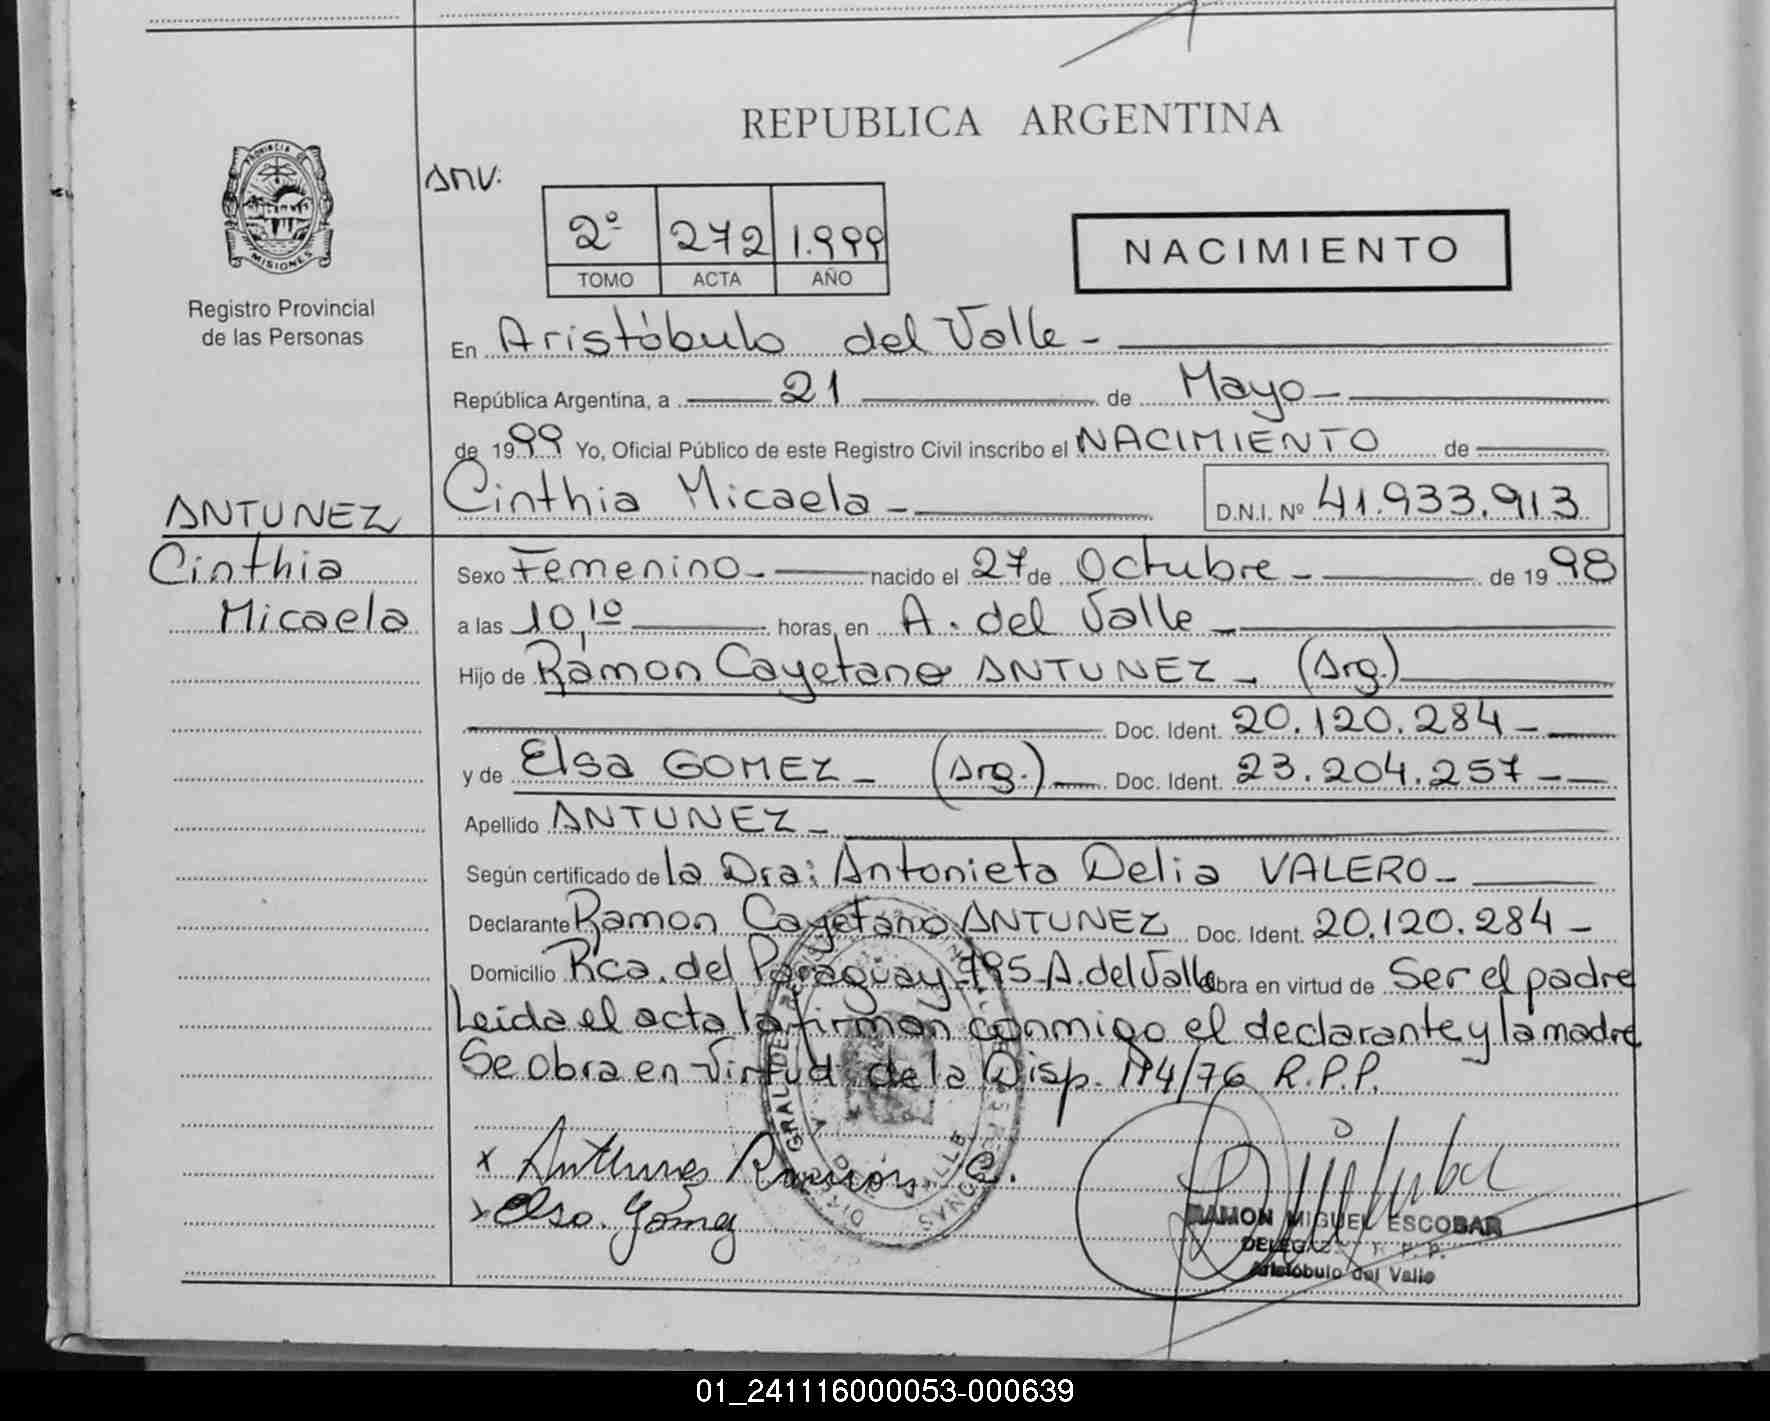 REPUBLICA ARGENTINA
PROVINCIA DE
MISIONES
Registro Provincial
de las Personas
2º 272 1.999
TOMO ACTA AÑO
NACIMIENTO
En Aristóbulo del Valle -
República Argentina, a 21 de Mayo -
de 1999 Yo, Oficial Público de este Registro Civil inscribo el NACIMIENTO de
Cinthia Micaela - D.N.I. Nº 41.933.913
ANTUNEZ
Cinthia
Micaela
Sexo Femenino - nacido el 27 de Octubre - de 1998
a las 10,10 horas, en A. del Valle -
Hijo de Ramon Cayetano ANTUNEZ - (Arg.)
Doc. Ident. 20.120.284 -
y de Elsa GOMEZ - (Arg.) Doc. Ident. 23.204.257 -
Apellido ANTUNEZ -
Según certificado de la Dra: Antonieta Delia VALERO -
Declarante Ramon Cayetano ANTUNEZ Doc. Ident. 20.120.284 -
Domicilio Rca. del Paraguay 795 A. del Valle obra en virtud de Ser el padre
Leida el acta la firman conmigo el declarante y la madre
Se obra en Virtud de la Disp. Nº4/76 R.P.P.
x Antunez Ramón C.
x Elsa. Gómez
RAMON MIGUEL ESCOBAR
Aristóbulo del Valle
01_241116000053-000639